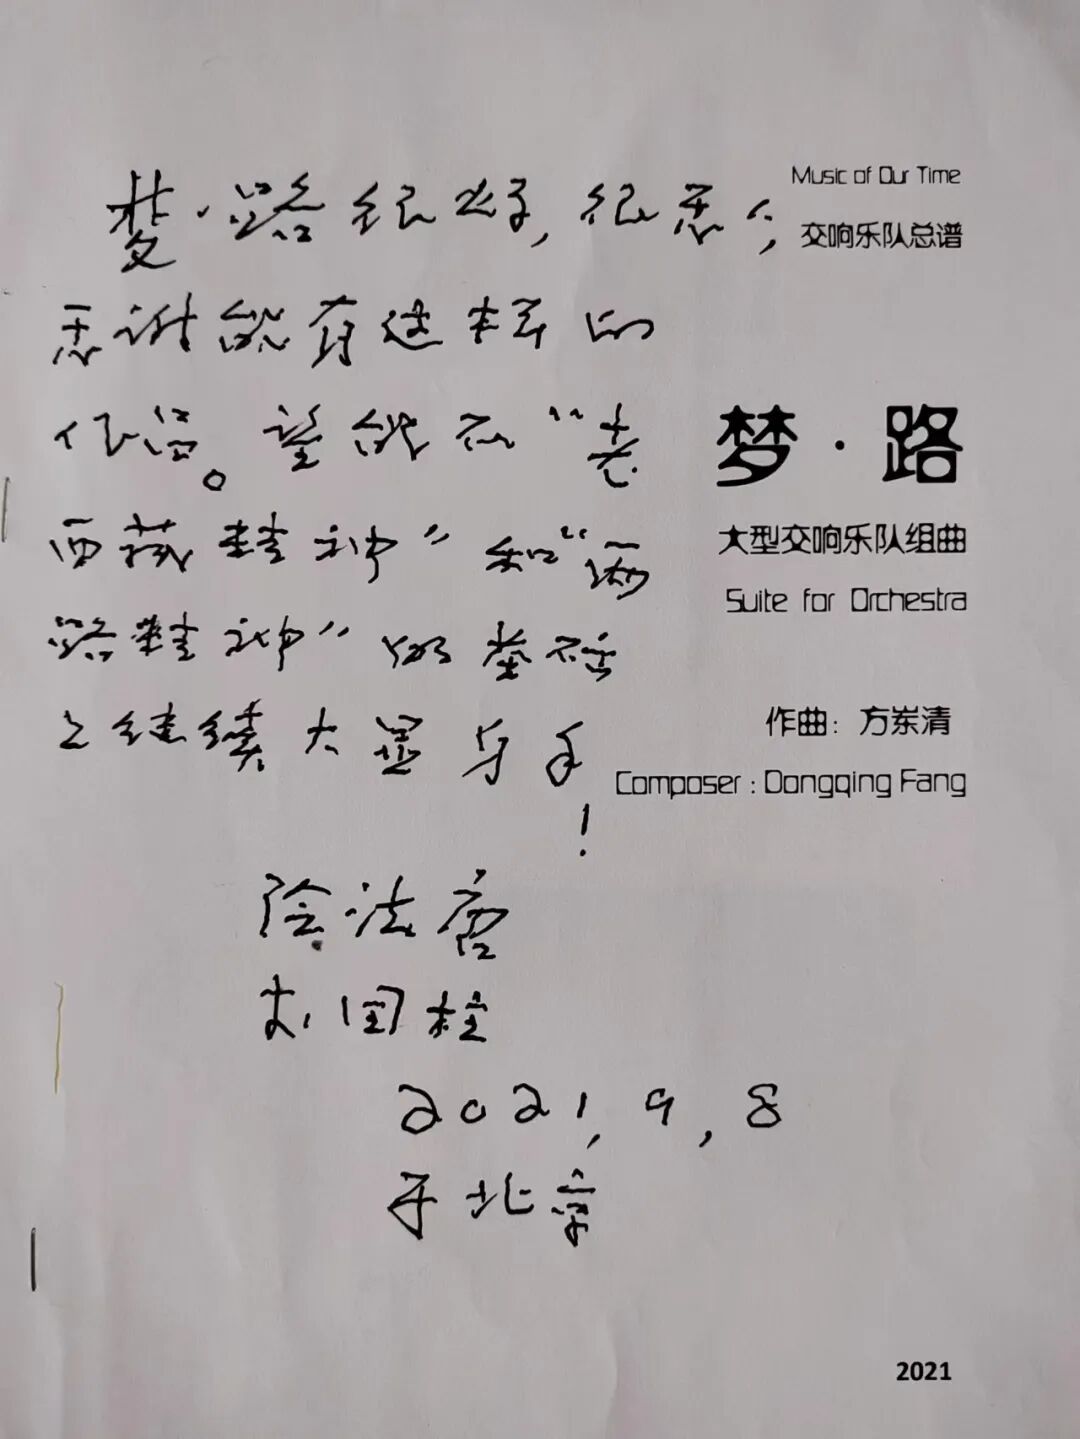 Music of Our Time
交响乐队总谱
梦·路很好,很感人,
感谢能有这样的
作品。望能在“老
西藏精神”和“两
路精神”基础
上继续大显身手!
梦·路
大型交响乐队组曲
Suite for Orchestra
作曲：方岽清
Composer : Dongqing Fang
陰法唐
李国柱
2021,9,8
于北京
2021